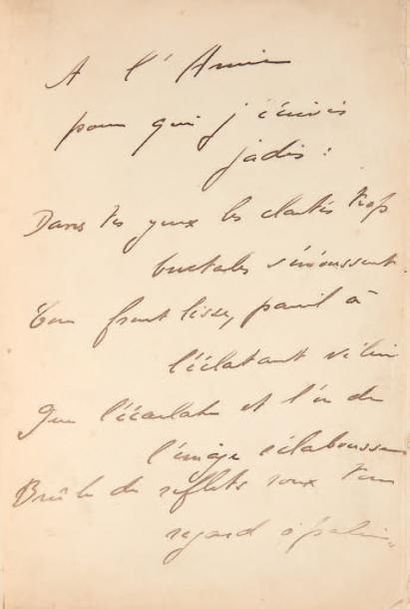 A l'Amie
pour qui j'écrivis
jadis :
Dans tes yeux les clartés trop
brutales s'émoussent.
Ton front lisse, pareil à
l'éclatant vélin
Que l'écarlate et l'or de
l'image éclaboussent
Brûle de reflets roux ton
regard opalin.